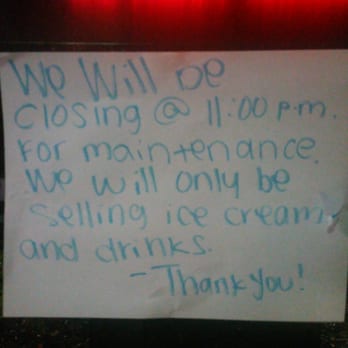 We Will be
Closing @ 11:00 p.m.
For maintenance.
We will only be
Selling ice cream
and drinks.
- Thank you!